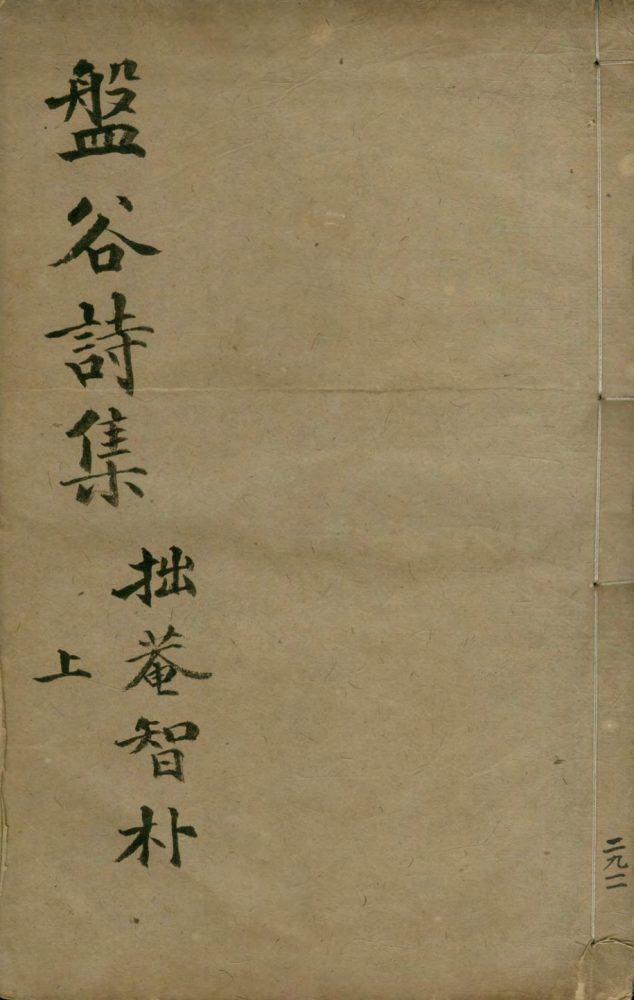 二九一
拙菴智朴
盤谷詩集
上